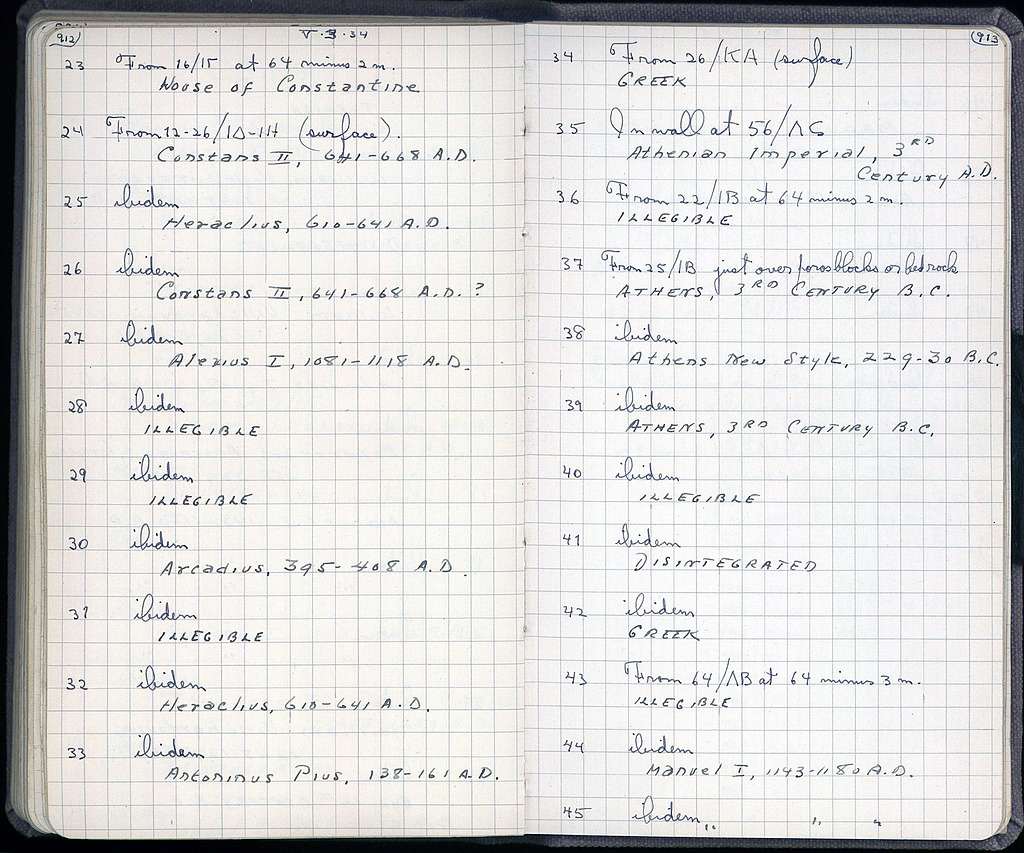 912
V·3·34
23 From 16/ΙΕ at 64 minus 2 m.
House of Constantine
24 From 12-26/ΙΔ-ΙΗ (surface).
Constans II, 641-668 A.D.
25 ibidem
Heraclius, 610-641 A.D.
26 ibidem
Constans II, 641-668 A.D. ?
27 ibidem
Alexius I, 1081-1118 A.D.
28 ibidem
ILLEGIBLE
29 ibidem
ILLEGIBLE
30 ibidem
Arcadius, 395-408 A.D.
31 ibidem
ILLEGIBLE
32 ibidem
Heraclius, 610-641 A.D.
33 ibidem
Antoninus Pius, 138-161 A.D.
913
34 From 26/ΚΑ (surface)
GREEK
35 In wall at 56/ΛϚ
Athenian Imperial, 3RD
Century A.D.
36 From 22/ΙΒ at 64 minus 2 m.
ILLEGIBLE
37 From 25/ΙΒ just over poros blocks or bedrock
ATHENS, 3RD CENTURY B.C.
38 ibidem
Athens New Style, 229-30 B.C.
39 ibidem
ATHENS, 3RD CENTURY B.C.
40 ibidem
ILLEGIBLE
41 ibidem
DISINTEGRATED
42 ibidem
GREEK
43 From 64/ΛΒ at 64 minus 3 m.
ILLEGIBLE
44 ibidem
Manuel I, 1143-1180 A.D.
45 ibidem
" " "